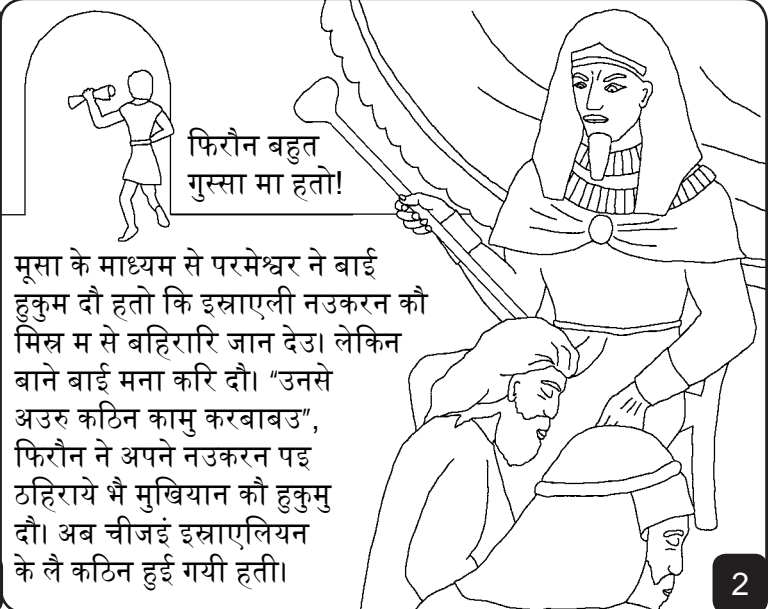 फिरौन बहुत
गुस्सा मा हतो!
मूसा के माध्यम से परमेश्वर ने बाई
हुकुम दौ हतो कि इस्राएली नउकरन कौ
मिस्र म से बहिरारि जान देउ। लेकिन
बाने बाई मना करि दौ। “उनसे
अउरु कठिन कामु करबाबउ”,
फिरौन ने अपने नउकरन पइ
ठहिराये भै मुखियान कौ हुकुमु
दौ। अब चीजइं इस्राएलियन
के लै कठिन हुई गयी हती।
2